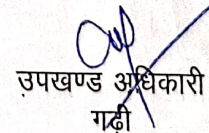 उपखण्ड अधिकारी
गढ़ी